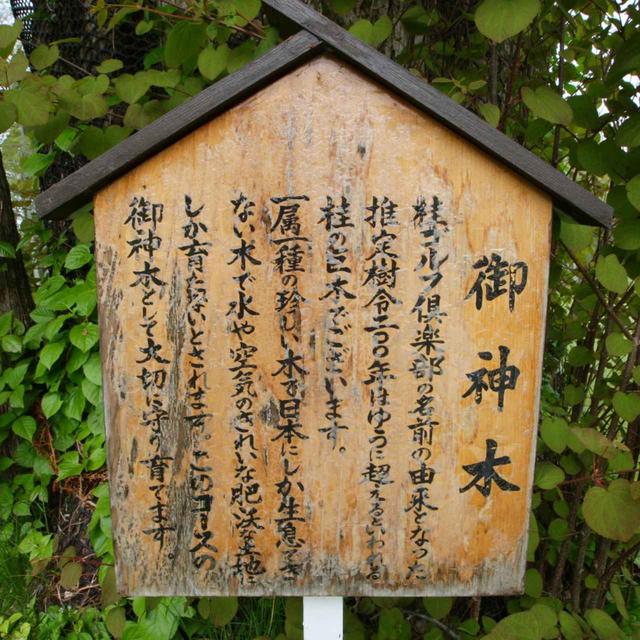 御神木
桂ゴルフ倶楽部の名前の由来となった
推定樹令三〇〇年はゆうに超えるといわれる
桂の巨木でございます。
一属一種の珍しい木で日本にしか生息しき
ない木で水や空気のきれいな肥沃な土地に
しか育たないとされます。このコースの
御神木として大切に守り育てます